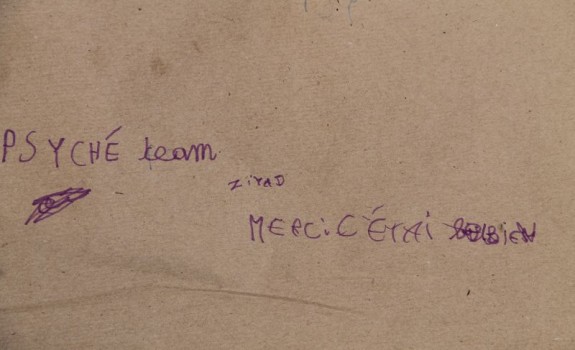 PSYCHÉ team
ZiYAD
MERCi C'ÉTAi BIEN